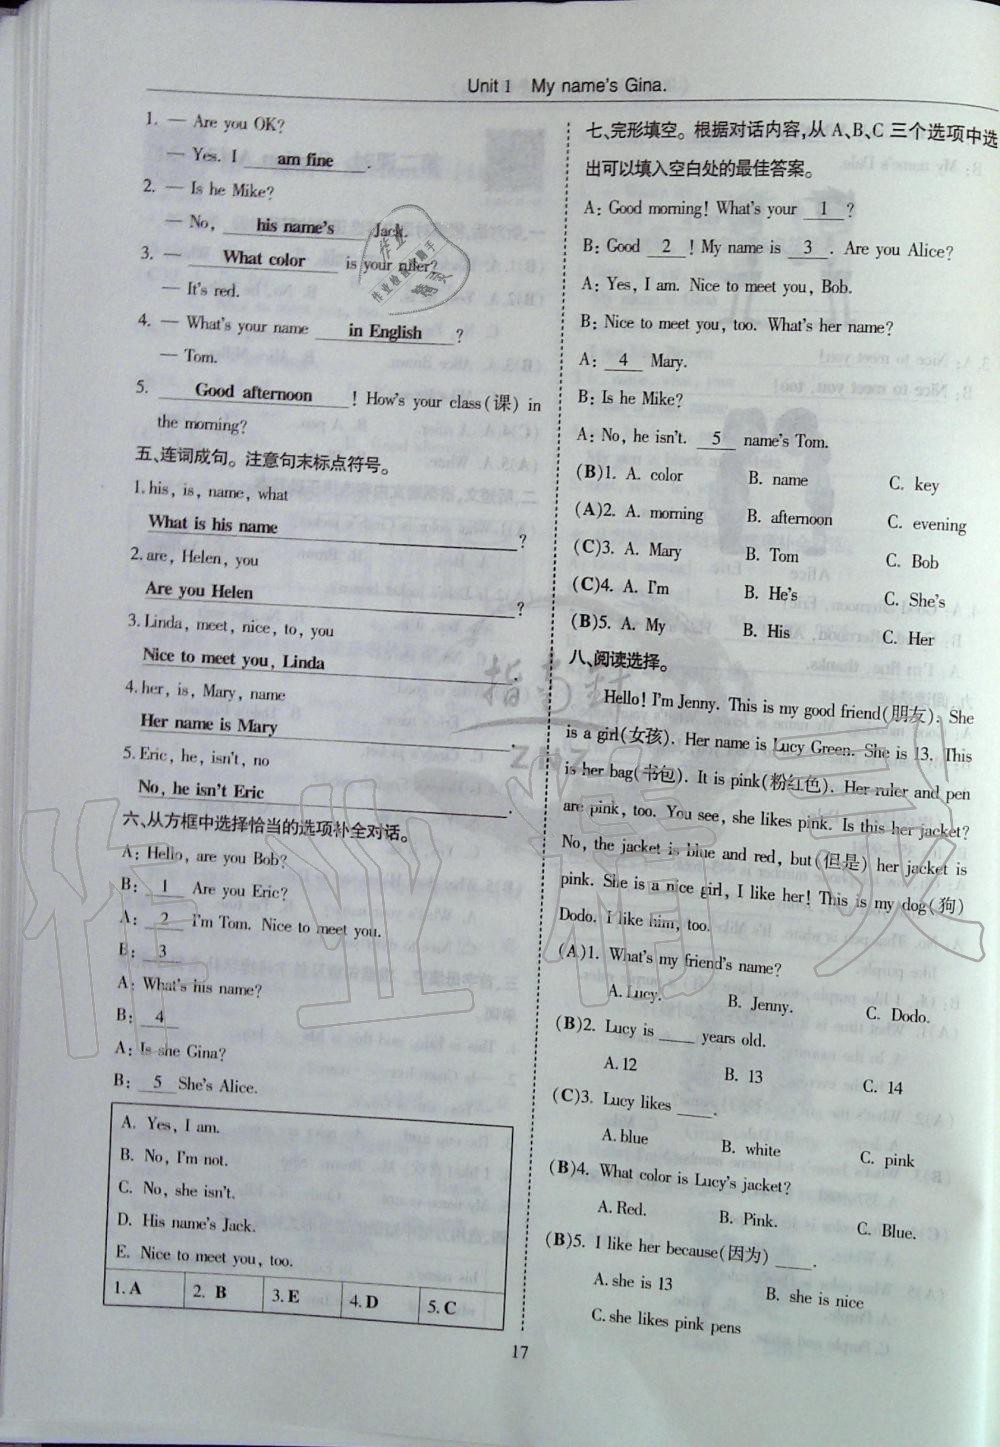 Unit 1 My name's Gina.
1. — Are you OK?
— Yes. I am fine .
2. — Is he Mike?
— No, his name's Jack.
3. — What color is your ruler?
— It's red.
4. — What's your name in English ?
— Tom.
5. Good afternoon ! How's your class(课) in
the morning?
五、连词成句。注意句末标点符号。
1. his, is, name, what
What is his name ?
2. are, Helen, you
Are you Helen ?
3. Linda, meet, nice, to, you
Nice to meet you, Linda .
4. her, is, Mary, name
Her name is Mary .
5. Eric, he, isn't, no
No, he isn't Eric .
六、从方框中选择恰当的选项补全对话。
A: Hello, are you Bob?
B: 1 Are you Eric?
A: 2 I'm Tom. Nice to meet you.
B: 3
A: What's his name?
B: 4
A: Is she Gina?
B: 5 She's Alice.
A. Yes, I am.
B. No, I'm not.
C. No, she isn't.
D. His name's Jack.
E. Nice to meet you, too.
1. A 2. B 3. E 4. D 5. C
七、完形填空。根据对话内容,从 A、B、C 三个选项中选
出可以填入空白处的最佳答案。
A: Good morning! What's your 1 ?
B: Good 2 ! My name is 3 . Are you Alice?
A: Yes, I am. Nice to meet you, Bob.
B: Nice to meet you, too. What's her name?
A: 4 Mary.
B: Is he Mike?
A: No, he isn't. 5 name's Tom.
(B)1. A. color B. name C. key
(A)2. A. morning B. afternoon C. evening
(C)3. A. Mary B. Tom C. Bob
(C)4. A. I'm B. He's C. She's
(B)5. A. My B. His C. Her
八、阅读选择。
Hello! I'm Jenny. This is my good friend(朋友). She
is a girl(女孩). Her name is Lucy Green. She is 13. This
is her bag(书包). It is pink(粉红色). Her ruler and pen
are pink, too. You see, she likes pink. Is this her jacket?
No, the jacket is blue and red, but(但是) her jacket is
pink. She is a nice girl, I like her! This is my dog(狗)
Dodo. I like him, too.
(A)1. What's my friend's name?
A. Lucy. B. Jenny. C. Dodo.
(B)2. Lucy is ____ years old.
A. 12 B. 13 C. 14
(C)3. Lucy likes ____.
A. blue B. white C. pink
(B)4. What color is Lucy's jacket?
A. Red. B. Pink. C. Blue.
(B)5. I like her because(因为) ____.
A. she is 13 B. she is nice
C. she likes pink pens
17
指南针
ZNZ
作业精灵